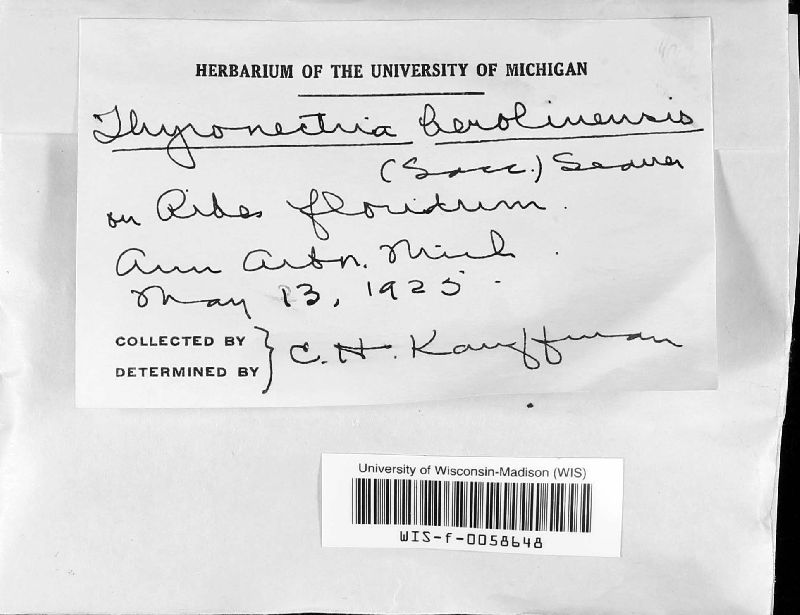 HERBARIUM OF THE UNIVERSITY OF MICHIGAN
Thyronectria berolinensis
(Sacc.) Seaver
on Ribes floridum.
Ann Arbor. Mich.
May 13, 1925.
COLLECTED BY
DETERMINED BY
C. H. Kauffman
University of Wisconsin-Madison (WIS)
WIS-f-0058648